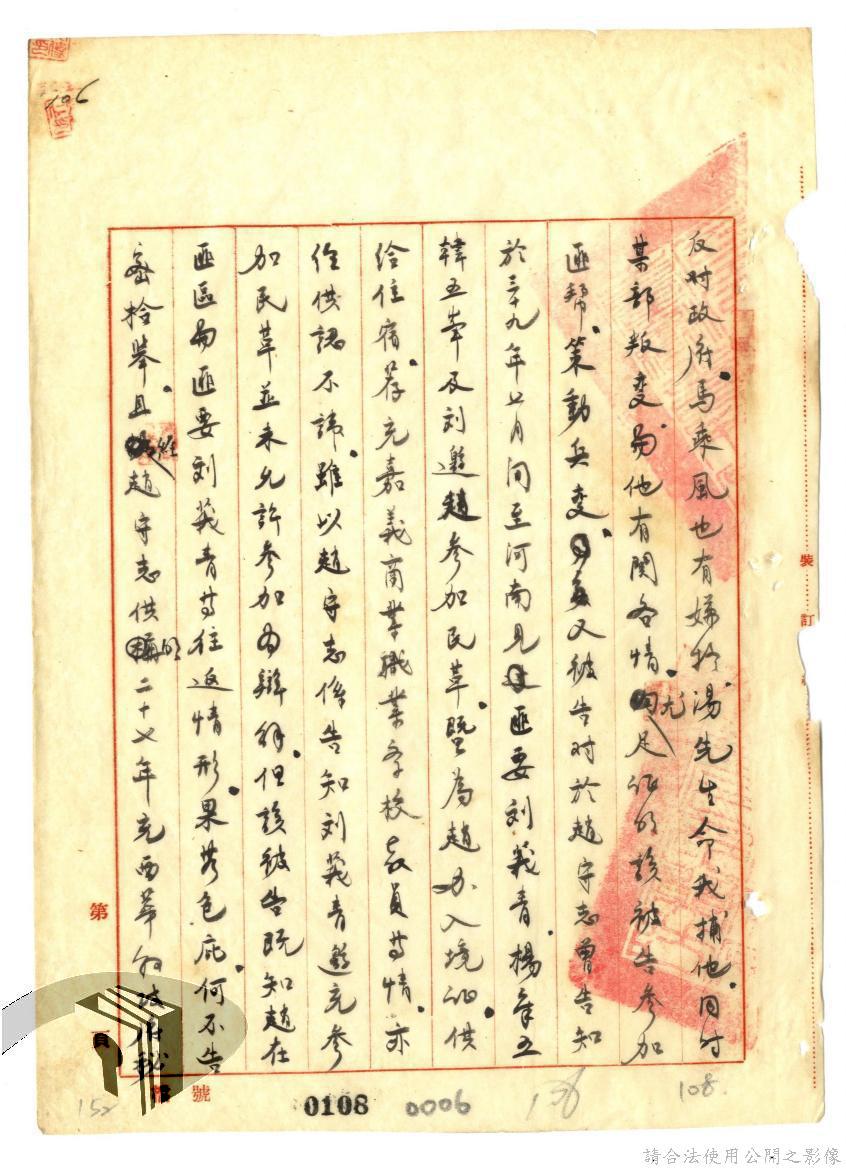 反对政府。馬乘風也有嫌於湯先生命我捕他。同时
某部叛变。与他有関各情。尤足证明該被告參加
匪帮。策動兵变。又被告对於趙守志曾告知
於三十九年七月间至河南見匪要刘莪青。楊章五
韓五峯及刘邀趙參加民革。既為趙办入境证供
给住宿。荐充嘉義商業職業学校教員等情。亦
经供認不諱。雖以趙守志係告知刘莪青邀充參
加民革並未允許參加為辯解。但該被告既知趙在
匪區与匪要刘莪青等往返情形。果无包庇。何不告
密檢舉。且經趙守志供明二十七年充西華縣政府秘
106
裝
訂
第
頁
號
0108
0006
136
108
152
請合法使用公開之影像